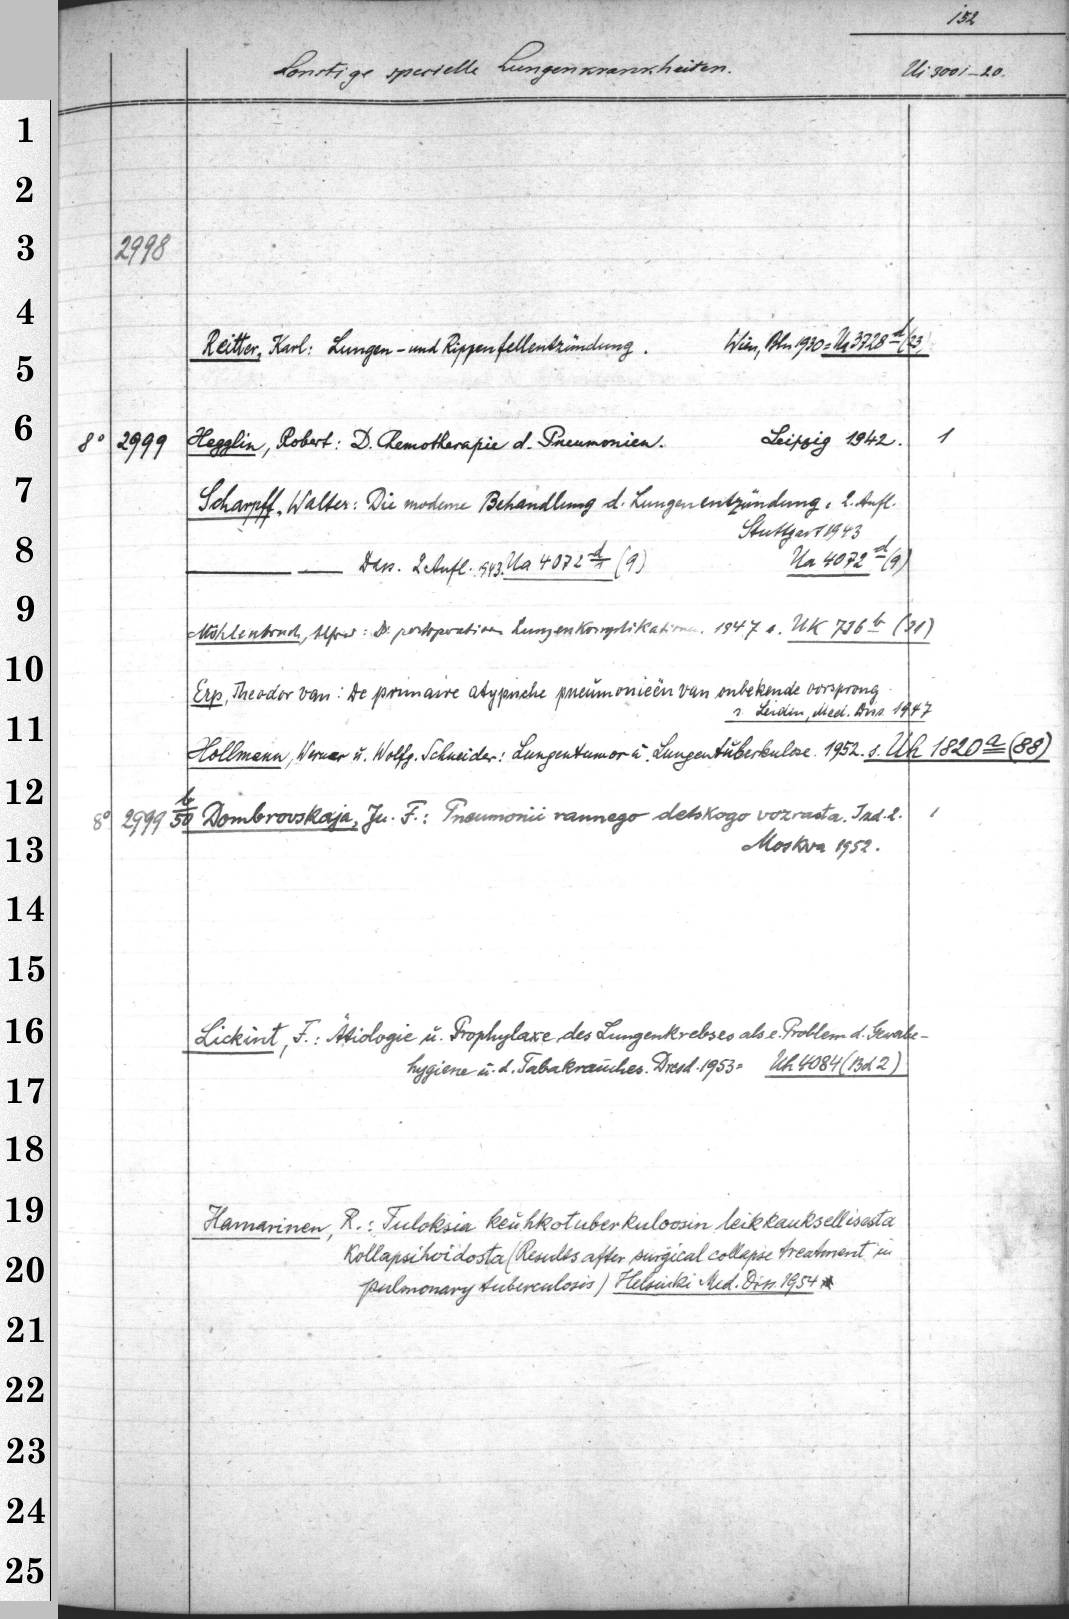 152
Sonstige spezielle Lungenkrankheiten. Ui 3001-20.
1
2
3 2998
4
Reitter, Karl: Lungen- und Rippenfellentzündung. Wien, Bln 1930 = Ua 3728 d (23)
5
6 8° 2999 Hegglin, Robert: D. Chemotherapie d. Pneumonien. Leipzig 1942. 1
7 Scharpff, Walter: Die moderne Behandlung d. Lungenentzündung. 2. Aufl.
Stuttgart 1943
8 Dass. 2 Aufl. 943. Ua 4072 d (9) Ua 4072 d (9)
9 Mühlenbruch, Alfred: D. postoperativen Lungenkomplikationen. 1947 s. Uk 736 b (31)
10 Erp, Theodor van: De primaire atypische pneumonieën van onbekende oorsprong
s. Leiden, Med. Diss 1947
11 Hollmann, Werner u. Wolfg. Schneider: Lungentumor u. Lungentuberkulose. 1952. s. Uh 1820 a (88)
12 8° 2999 b/50 Dombrovskaja, Ju. F.: Pneumonii rannego detskogo vozrasta. Izd. 2. 1
13 Moskva 1952.
14
15
16 Lickint, F.: Ätiologie u. Prophylaxe des Lungenkrebses als e. Problem d. Gewerbe-
17 hygiene u. d. Tabakrauches. Dresd. 1953 = Uh 4084 (Bd 2)
18
19 Hamarinen, R.: Tuloksia keuhkotuberkuloosin leikkauksellisesta
20 kollapsihoidosta (Results after surgical collapse treatment in
pulmonary tuberculosis) Helsinki Med. Diss. 1954
21
22
23
24
25